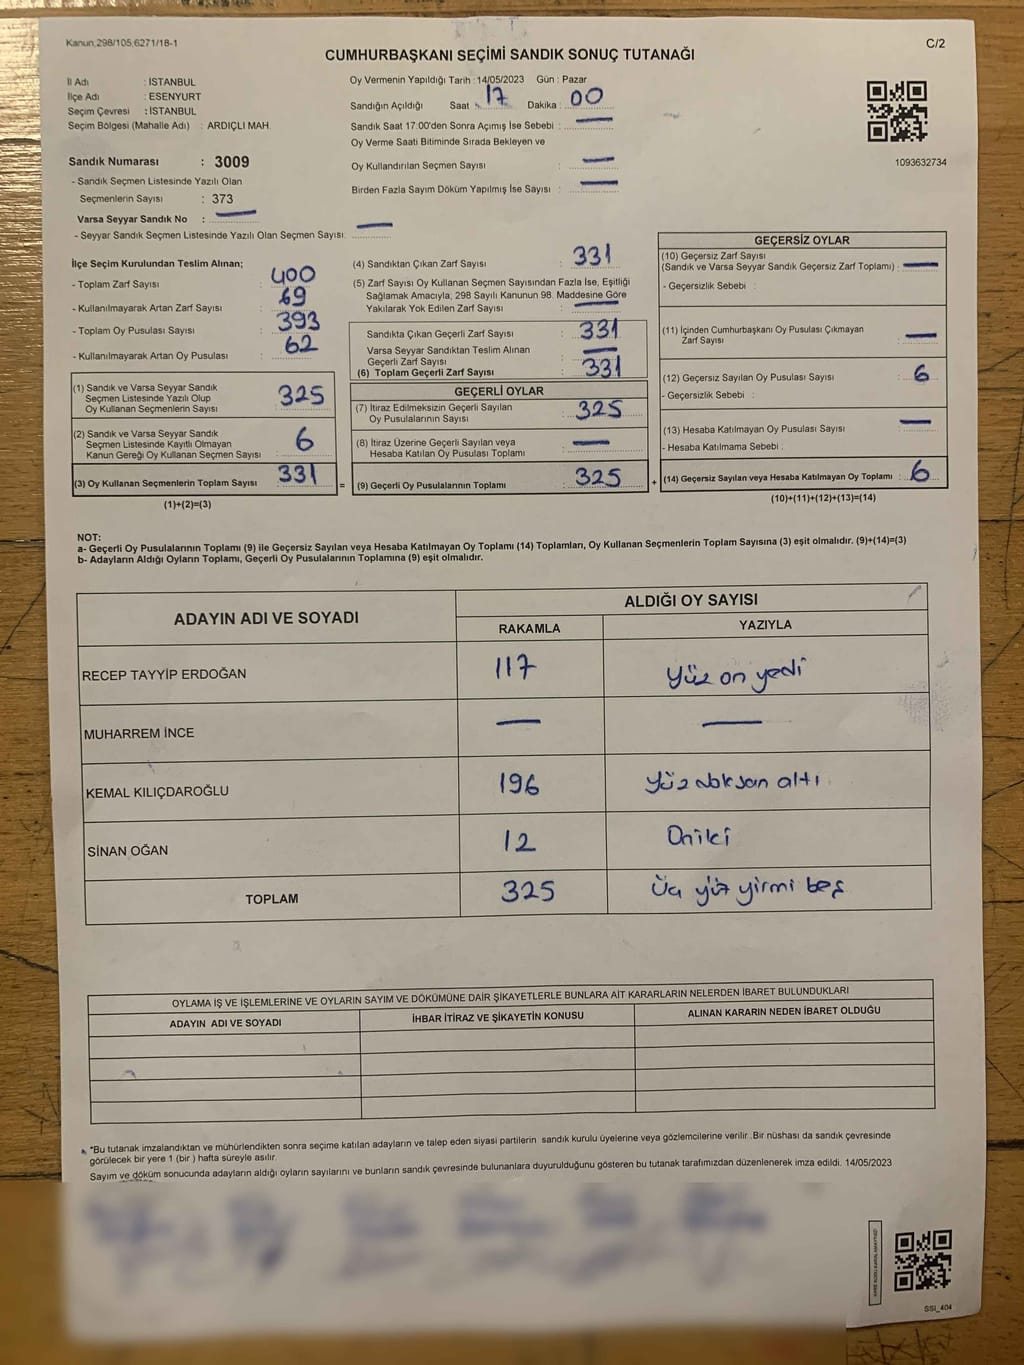 Kanun,298/105,6271/18-1
C/2
CUMHURBAŞKANI SEÇİMİ SANDIK SONUÇ TUTANAĞI
İl Adı : İSTANBUL
İlçe Adı : ESENYURT
Seçim Çevresi : İSTANBUL
Seçim Bölgesi (Mahalle Adı) : ARDIÇLI MAH.
Sandık Numarası : 3009
- Sandık Seçmen Listesinde Yazılı Olan
Seçmenlerin Sayısı : 373
Varsa Seyyar Sandık No : —
- Seyyar Sandık Seçmen Listesinde Yazılı Olan Seçmen Sayısı: —
Oy Vermenin Yapıldığı Tarih : 14/05/2023 Gün : Pazar
Sandığın Açıldığı Saat : 17 Dakika : 00
Sandık Saat 17:00'den Sonra Açımış İse Sebebi : —
Oy Verme Saati Bitiminde Sırada Bekleyen ve
Oy Kullandırılan Seçmen Sayısı : —
Birden Fazla Sayım Döküm Yapılmış İse Sayısı : —
1093632734
İlçe Seçim Kurulundan Teslim Alınan;
- Toplam Zarf Sayısı : 400
- Kullanılmayarak Artan Zarf Sayısı : 69
- Toplam Oy Pusulası Sayısı : 393
- Kullanılmayarak Artan Oy Pusulası : 62
(1) Sandık ve Varsa Seyyar Sandık
Seçmen Listesinde Yazılı Olup
Oy Kullanan Seçmenlerin Sayısı : 325
(2) Sandık ve Varsa Seyyar Sandık
Seçmen Listesinde Kayıtlı Olmayan
Kanun Gereği Oy Kullanan Seçmen Sayısı : 6
(3) Oy Kullanan Seçmenlerin Toplam Sayısı : 331
(1)+(2)=(3)
=
(4) Sandıktan Çıkan Zarf Sayısı : 331
(5) Zarf Sayısı Oy Kullanan Seçmen Sayısından Fazla İse, Eşitliği
Sağlamak Amacıyla, 298 Sayılı Kanunun 98. Maddesine Göre
Yakılarak Yok Edilen Zarf Sayısı : —
Sandıkta Çıkan Geçerli Zarf Sayısı : 331
Varsa Seyyar Sandıktan Teslim Alınan
Geçerli Zarf Sayısı : —
(6) Toplam Geçerli Zarf Sayısı : 331
GEÇERLİ OYLAR
(7) İtiraz Edilmeksizin Geçerli Sayılan
Oy Pusulalarının Sayısı : 325
(8) İtiraz Üzerine Geçerli Sayılan veya
Hesaba Katılan Oy Pusulası Toplamı : —
(9) Geçerli Oy Pusulalarının Toplamı : 325
+
GEÇERSİZ OYLAR
(10) Geçersiz Zarf Sayısı
(Sandık ve Varsa Seyyar Sandık Geçersiz Zarf Toplamı) : —
- Geçersizlik Sebebi :
(11) İçinden Cumhurbaşkanı Oy Pusulası Çıkmayan
Zarf Sayısı : —
(12) Geçersiz Sayılan Oy Pusulası Sayısı : 6
- Geçersizlik Sebebi :
(13) Hesaba Katılmayan Oy Pusulası Sayısı : —
- Hesaba Katılmama Sebebi :
(14) Geçersiz Sayılan veya Hesaba Katılmayan Oy Toplamı : 6
(10)+(11)+(12)+(13)=(14)
NOT:
a- Geçerli Oy Pusulalarının Toplamı (9) ile Geçersiz Sayılan veya Hesaba Katılmayan Oy Toplamı (14) Toplamları, Oy Kullanan Seçmenlerin Toplam Sayısına (3) eşit olmalıdır. (9)+(14)=(3)
b- Adayların Aldığı Oyların Toplamı, Geçerli Oy Pusulalarının Toplamına (9) eşit olmalıdır.
ADAYIN ADI VE SOYADI
ALDIĞI OY SAYISI
RAKAMLA YAZIYLA
RECEP TAYYİP ERDOĞAN 117 Yüz on yedi
MUHARREM İNCE — —
KEMAL KILIÇDAROĞLU 196 Yüz doksan altı
SİNAN OĞAN 12 Oniki
TOPLAM 325 Üç yüz yirmi beş
OYLAMA İŞ VE İŞLEMLERİNE VE OYLARIN SAYIM VE DÖKÜMÜNE DAİR ŞİKAYETLERLE BUNLARA AİT KARARLARIN NELERDEN İBARET BULUNDUKLARI
ADAYIN ADI VE SOYADI İHBAR İTİRAZ VE ŞİKAYETİN KONUSU ALINAN KARARIN NEDEN İBARET OLDUĞU
*Bu tutanak imzalandıktan ve mühürlendikten sonra seçime katılan adayların ve talep eden siyasi partilerin sandık kurulu üyelerine veya gözlemcilerine verilir. Bir nüshası da sandık çevresinde
görülecek bir yere 1 (bir) hafta süreyle asılır.
Sayım ve döküm sonucunda adayların aldığı oyların sayılarını ve bunların sandık çevresinde bulunanlara duyurulduğunu gösteren bu tutanak tarafımızdan düzenlenerek imza edildi. 14/05/2023
SSI_404